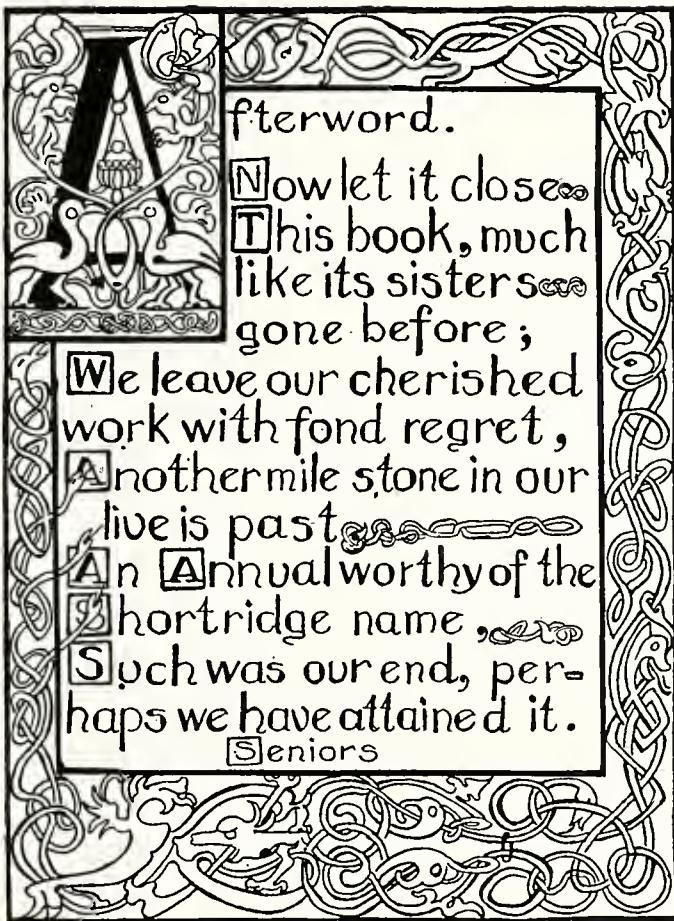 Afterword.
Now let it close
This book, much
like its sisters
gone before;
We leave our cherished
work with fond regret,
Another mile stone in our
live is past
An Annual worthy of the
Shortridge name,
Such was our end, per-
haps we have attained it.
Seniors